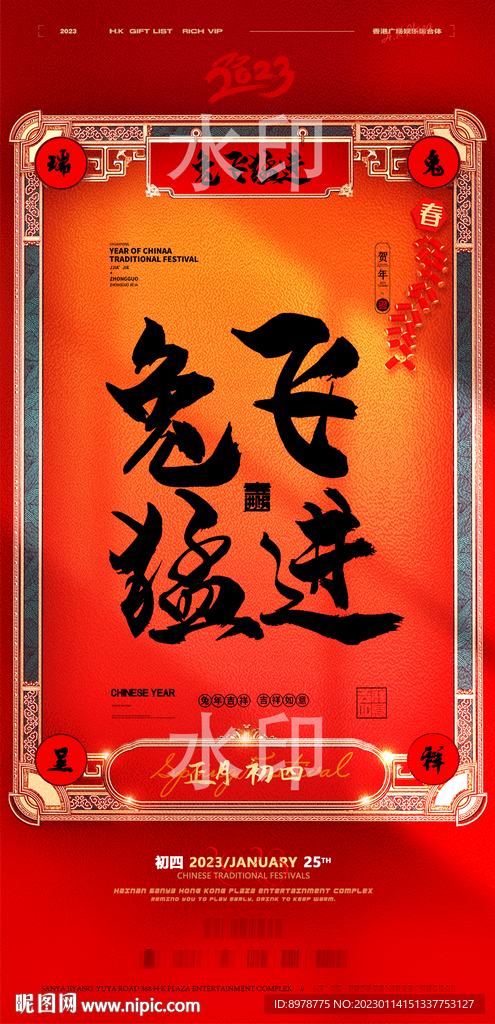 2023 H.K GIFT LIST RICH VIP 香港广场娱乐综合体
2023
水印
瑞 兔飞猛进 兔
春
YEAR OF CHINAA
TRADITIONAL FESTIVAL
ZHONGGUO
贺年
兔飞
猛进
CHINESE YEAR 兔年吉祥 吉祥如意
水印
呈 祥
Spring Festival
正月初四
初四 2023/JANUARY 25TH
CHINESE TRADITIONAL FESTIVALS
HAINAN SANYA HONG KONG PLAZA ENTERTAINMENT COMPLEX
REMIND YOU TO PLAY EARLY, DRINK TO KEEP WARM.
SANYA JIYANG YUYA ROAD 368 H K PLAZA ENTERTAINMENT COMPLEX
昵图网 www.nipic.com ID:8978775 NO:20230114151337753127